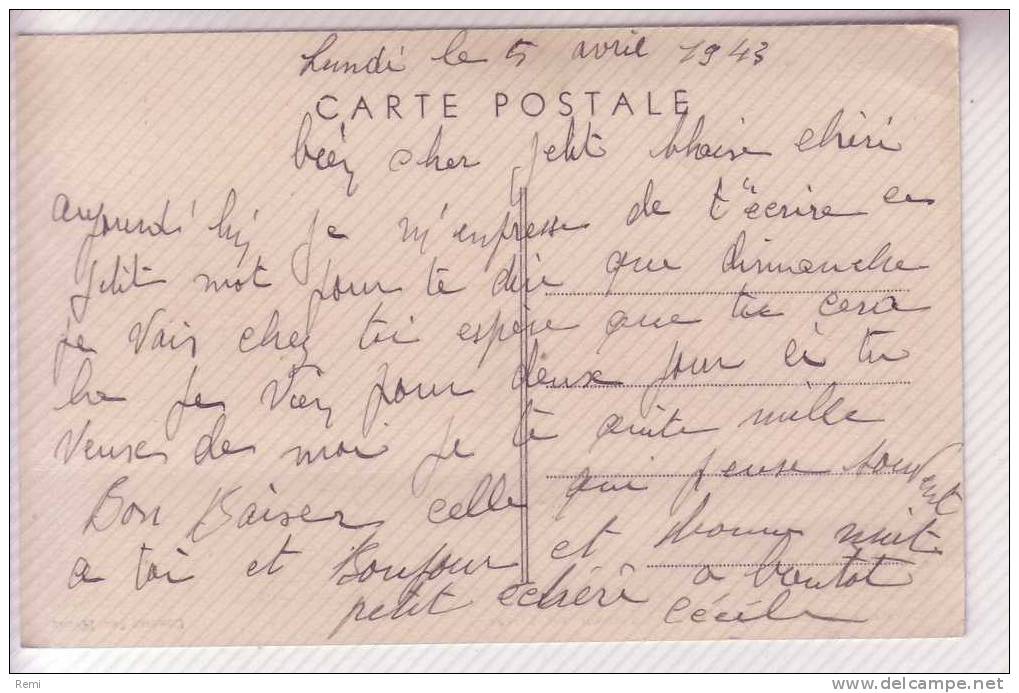 Lundi le 5 avril 1943
CARTE POSTALE
bien cher petit blaise chéri
aujourd'hui je m'empresse de t'écrire ce
petit mot pour te dire que dimanche
je vais chez toi espère que tu cera
la je vien pour deux jour ci tu
veuse de moi je te quite mille
Bon Baiser celle qui pense souvent
a toi et Bonjour et bonne nuit
petit chéri a bientot
Cécile
Remi
www.delcampe.net